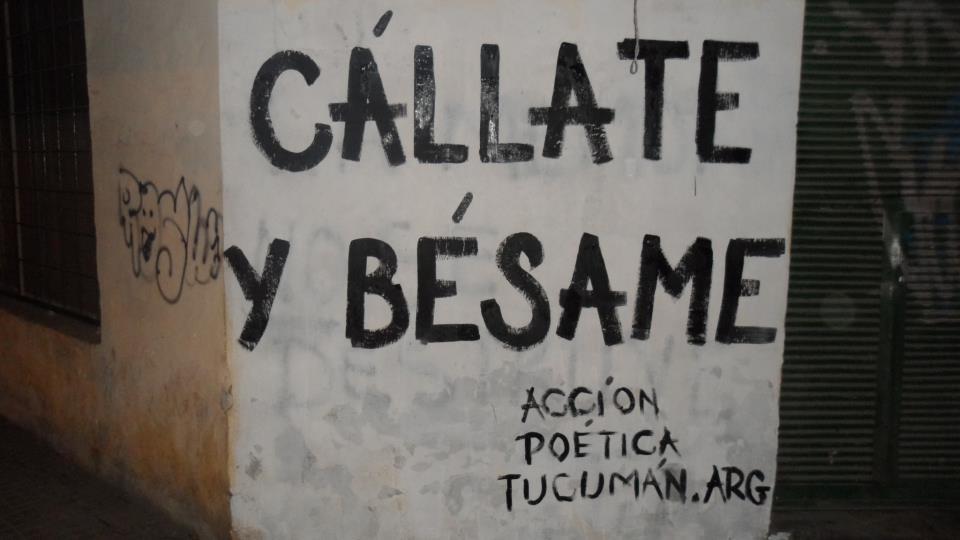 CÁLLATE
Y BÉSAME
ACCIÓN
POÉTICA
TUCUMÁN.ARG